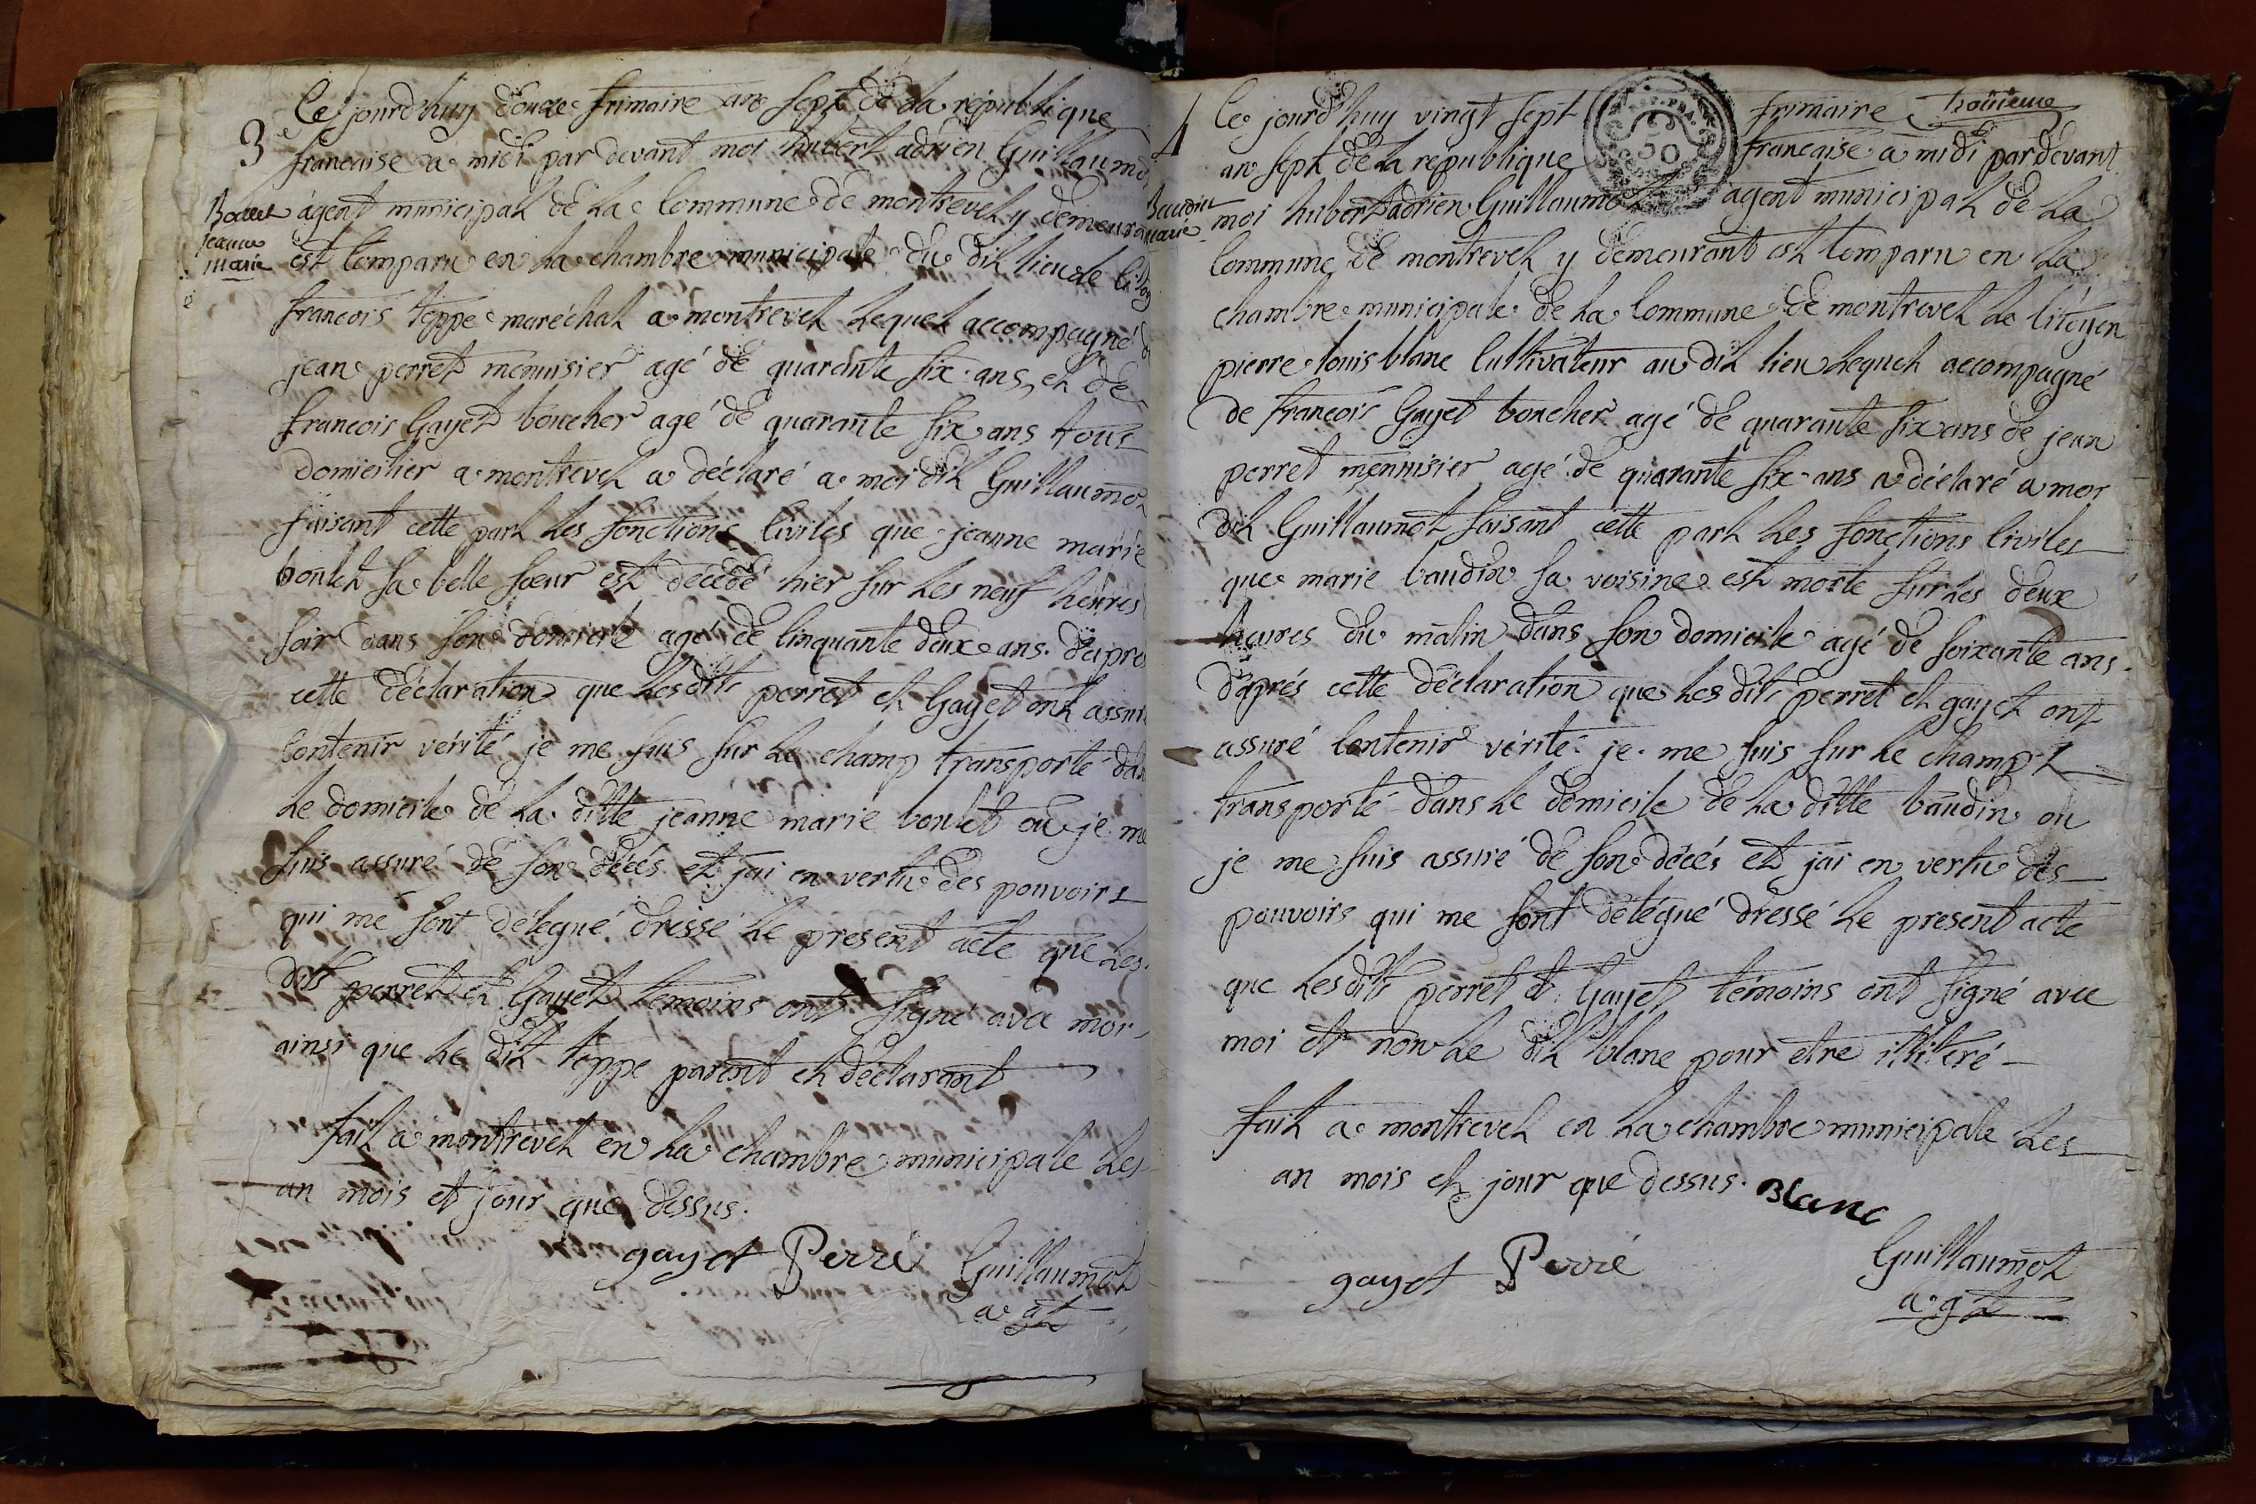 3
Boulet
jeanne
marie
Ce jourd'huy douze frimaire an sept de la république
francaise a midi par devant moi hubert adrien Guillaumot
agent municipal de la Commune de montrevel y demeurant
est Comparu en la chambre municipale du dit lieu le Citoy
francois teppe maréchal a montrevel lequel accompagné de
jean perret menuisier agé de quarante six ans, et de
francois Gayet boucher agé de quarante six ans tous
domicilier a montrevel a déclaré a moi dit Guillaumot
faisant cette part les fonctions Civiles que jeanne marie
boulet sa belle sœur est décédé hier sur les neuf heures
soir dans son domicile agé de Cinquante deux ans. d'apres
cette déclaration que lesdits perret et Gayet ont assuré
Contenir vérité je me suis sur le champ transporté dans
le domicile de la ditte jeanne marie boulet ou je me
suis assuré de son décés et jai en vertu des pouvoirs
qui me sont délegué dressé le present acte que les
dits perret et Gayet temoins ont signé avec moi,
ainsi que le dit teppe parent et déclarant
fait a montrevel en la chambre municipale les
an mois et jour que dessus.
gayet Perré Guillaumot
agt
4
Baudin
marie
troisieme
50
Ce jourd'huy vingt sept frimaire
an sept de la republique francaise a midi pardevant
moi hubert adrien Guillaumot agent municipal de la
Commune de montrevel y demeurant est Comparu en la
chambre municipale de la Commune de montrevel le Citoyen
pierre louis blanc Cultivateur au dit lieu lequel accompagné
de francois Gayet boucher agé de quarante six ans de jean
perret menuisier agé de quarante six ans a déclaré a moi
dit Guillaumot faisant cette part les fonctions Civiles
que marie baudin sa voisine est morte sur les deux
heures du matin dans son domicile agé de soixante ans.
d'aprés cette déclaration que les dits perret et gayet ont
assuré Contenir vérité je me suis sur le champ
transporté dans le domicile de la ditte baudin ou
je me suis assuré de son décés et jai en vertu des
pouvoirs qui me sont délégué dressé le present acte
que lesdits perret et Gayet témoins ont signé avec
moi et non le dit blanc pour etre illiteré
fait a montrevel en la chambre municipale les
an mois et jour que dessus. Blanc
gayet Perré Guillaumot
agt